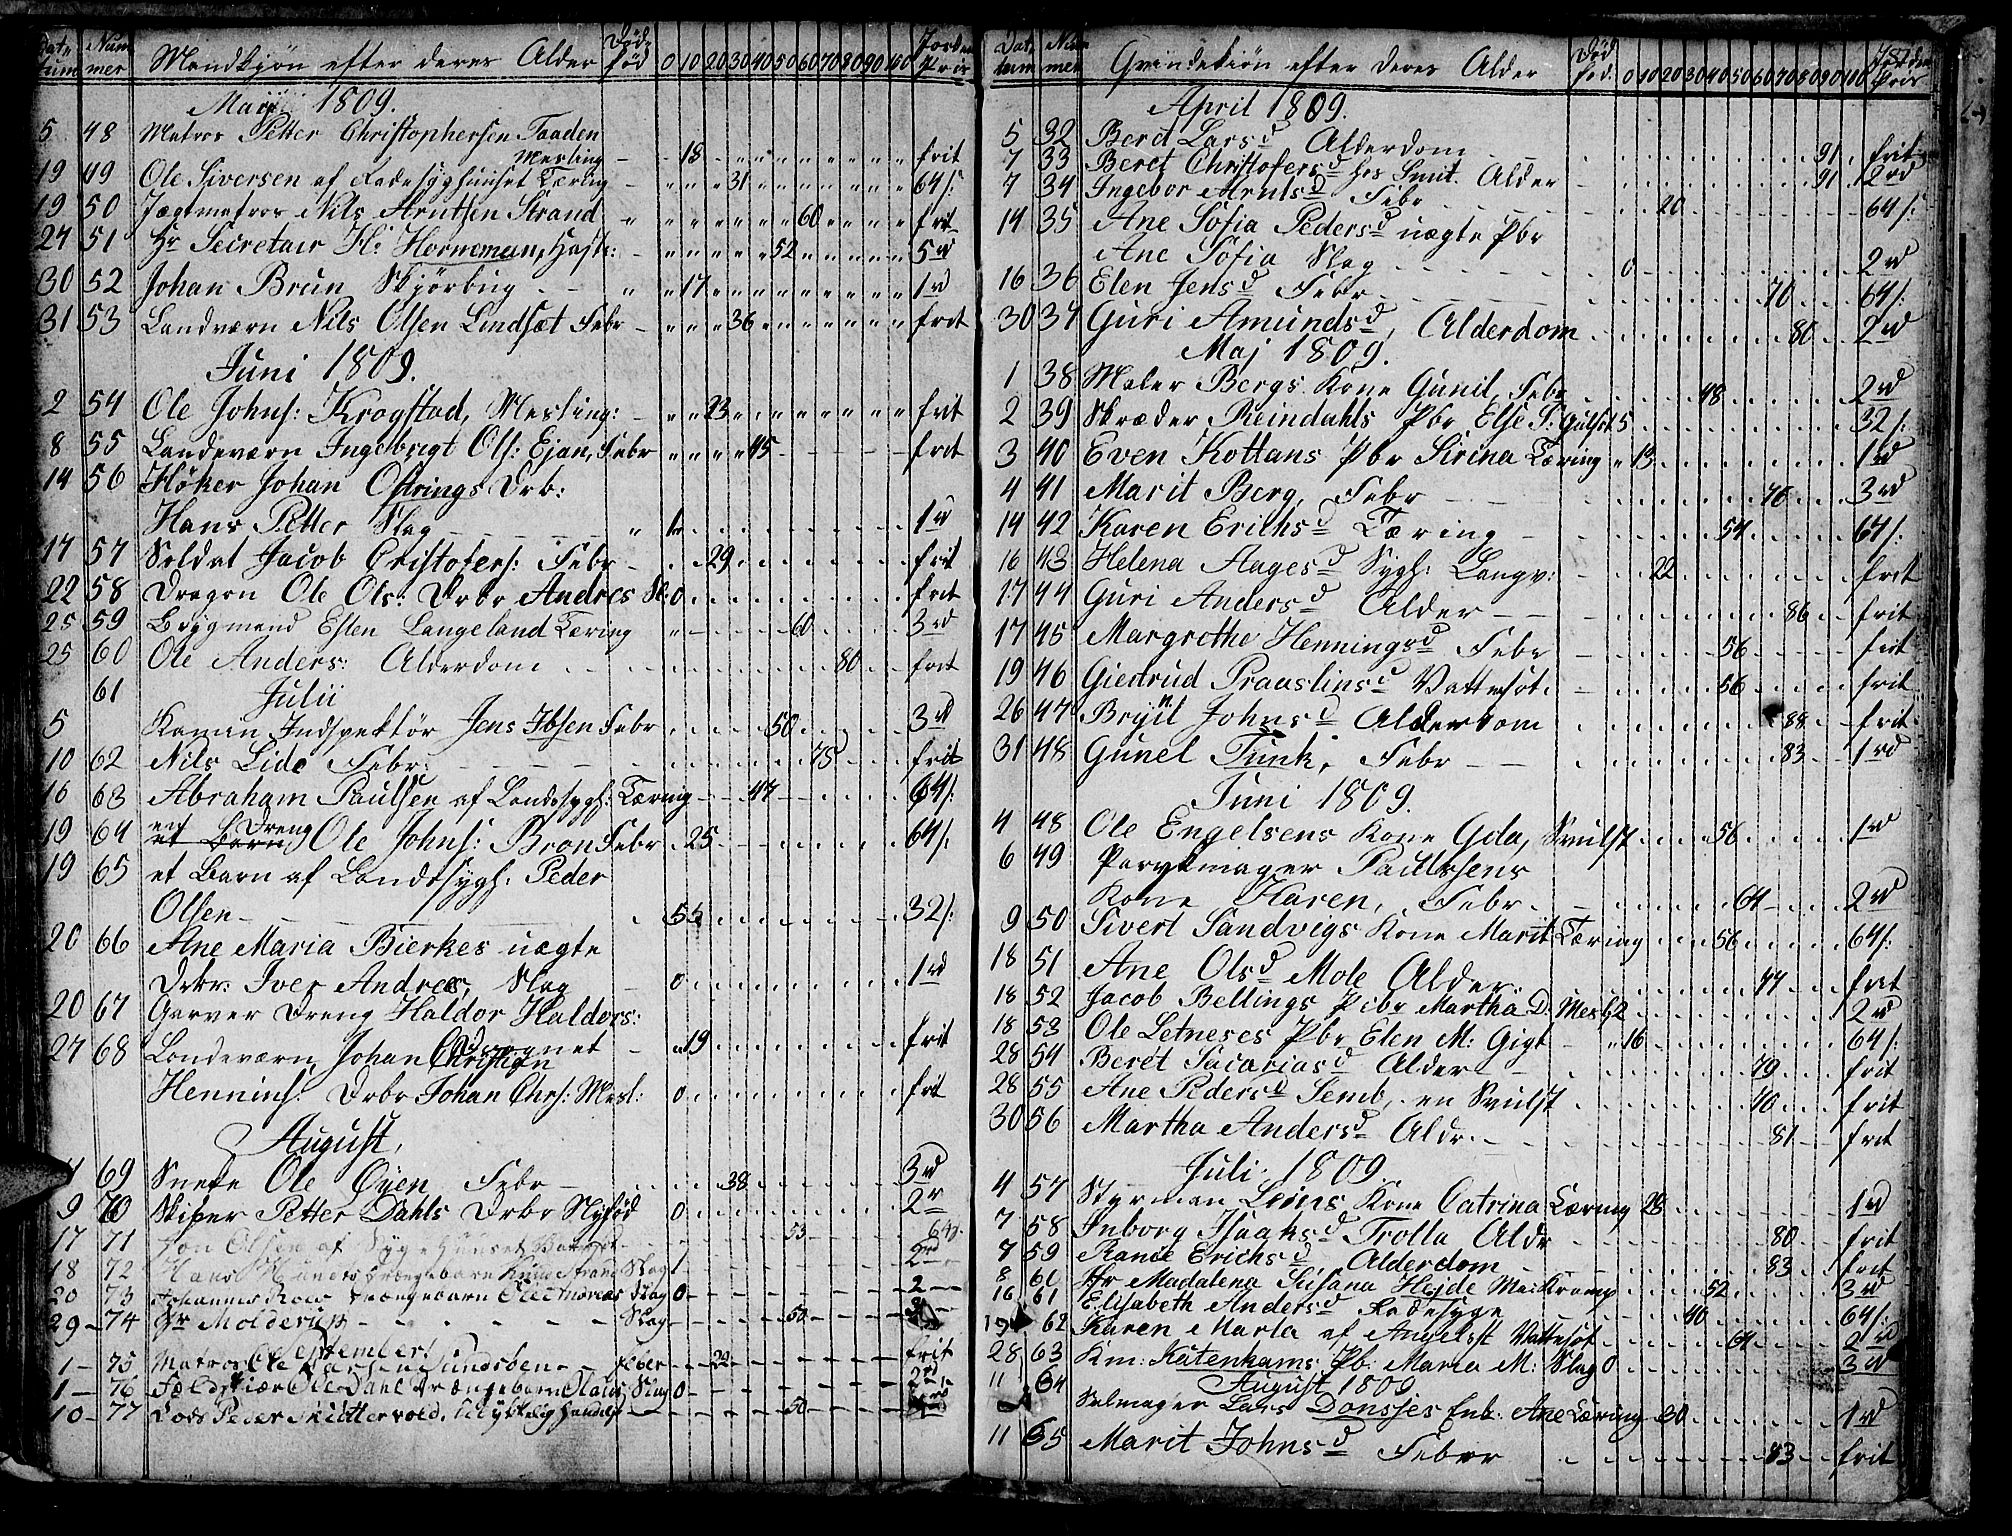 Datum Nummer Mandkjøn efter deres Alder Dødfød 0 10 20 30 40 50 60 70 80 90 100 Jordens Pris
Maji 1809.
5 48 Matros Petter Christophersen Taaden
Mesling - - 18 - frit
19 49 Ole Siversen af Radesyghuuset Tæring 31 64 s:
19 50 Jægtmatros Nils Arntsen Strand 60 frit
24 51 Hr Secretair H: Horneman, Hoste: 52 5 rd
30 52 Johan Brun Skjørbug 17 1 rd
31 53 Landværn Nils Olsen Lindsæt Febr 36 frit
Juni 1809.
2 54 Ole Johns: Krogstad, Mesling: 23 frit
8 55 Landeværn Ingebrigt Ols: Ejan, Febr 45 frit
14 56 Høker Johan Østrings Drb:
Hans Petter Slag 1 rd
17 57 Soldat Jacob Cristofers: Febr 29 frit
22 58 Dragon Ole Ols: Drbr Andres Sl: 0 frit
25 59 Brygmand Esten Langeland Tæring 60 3 rd
25 60 Ole Anders: Alderdom 80 frit
61 Julii
5 Kamin Indspektør Jens Ibsen Febr 50 3 rd
10 62 Nils Lide Febr: 75 frit
16 63 Abraham Paulsen af Landssygh: Tæring 47 64 s:
19 64 en Dreng et Barn Ole Johns: Bron Febr 25 64 s:
19 65 et Barn af Landssygh: Peder
Olsen 5 32 s:
20 66 Ane Maria Bierkes uægte
Drbr: Iver Andreas, Slag 0 1 rd
20 67 Garver Dreng Haldor Haldors:
Dragnet 19 frit
27 68 Landeværn Johan Christian
Hennins: Drbr Johan Chrs: Mesl: 0 frit
August,
69 Snek Ole Øyen Febr 38 3 rd
9 70 Skiper Petter Dahls Drbr Nyfød 0 2 r
17 71 Jon Olsen af Sygehuuset 53 64 s
18 72 Hans Drængebarn Slag 1 2 rd
20 73 Johannes Roes Drængebarn Ole Andreas Slag 0 2
29 - 74 Hr Molderup Slag 50
September
1 - 75 Matros Ole Larsen Sundsøen Feber 22 frit
1 - 76 Ole Dahl Drængebarn Olaus, Slag 0 2 rd
10 - 77 Lods Peder ulykkelig Hændelse 50
Datum Nummer Qvindekiøn efter deres Alder Død fød. 0 10 20 30 40 50 60 70 80 90 100 Jordens Pris
April 1809.
5 32 Berd Lars d Alderdom 91 frit
7 33 Beret Christofers d hos Smit. Alder 91 2 rd
7 34 Ingebor Arnts d Febr 20 64 s:
14 35 Ane Sofia Peders d uægte Pbr
Ane Sofia Slag 0 2 rd
16 36 Elen Jens d Febr 70 64 s:
30 37 Guri Amunds d, Alderdom 80 2 rd
Maj 1809.
1 38 Maler Bergs Kone Gunil, Febr 48 2 rd
2 39 Skræder Reindahls Pbr Else S: Gulsot 5 32 s:
3 40 Even Kottans Pbr Sirina Tæring 13 1 rd
4 41 Marit Berg, Febr 76 3 rd
14 42 Karen Erichs d Tæring 54 64 s:
16 43 Helena Aages d Sygh: Langv: 22 frit
17 44 Guri Anders d Alder 86 frit
17 45 Margrethe Hennings d Febr 56 frit
19 46 Giertrud Prauslins d Vattersot. 56 frit
26 47 Bryn Johns d Alderdom 88 frit
31 48 Gunel Tunk, Febr 83 1 rd
Juni 1809.
4 48 Ole Engelsens Kone Gda, Svulst 56 1 rd
6 49 Parykmager Paulsens
Kone Karen, Febr. 64 2 rd
9 50 Sivert Sandvigs Kone Marit Tæring 56 64 s:
18 51 Ane Ols d Mole Alder. 77 frit
18 52 Jacob Bellings Pibr Martha D: Mesl 2 2 rd
18 53 Ole Letneses Pbr Elen M: Gigt 16 64 s:
28 54 Beret Sacarias d Alder 79 frit
28 55 Ane Peders d Semb, en Svulst 70 frit
30 56 Martha Anders d Aldr. 81 frit
Juli 1809.
4 57 Styrman Leins Kone Catrina Tæring 28 1 rd
7 58 Inborg Isaaks d Trolla Aldr 80 frit
8 59 Rande Erichs d, Alderdom 83 frit
8 60 Fr Madalena Susana Hejde Mav Kramp 52 3 rd
16 61 Elisabeth Anders d Radesyge 40 64 s:
19 62 Karen Marta af Angelsst Vattersot 64 2 rd
28 63 Km: Katenhams Pb: Maria M: Slag 0 3 rd
August 1809
11 64 Selmager Lars Donsjes Enk: Ane Tæring 30 1 rd
11 65 Marit Johns d Febrr 83 frit